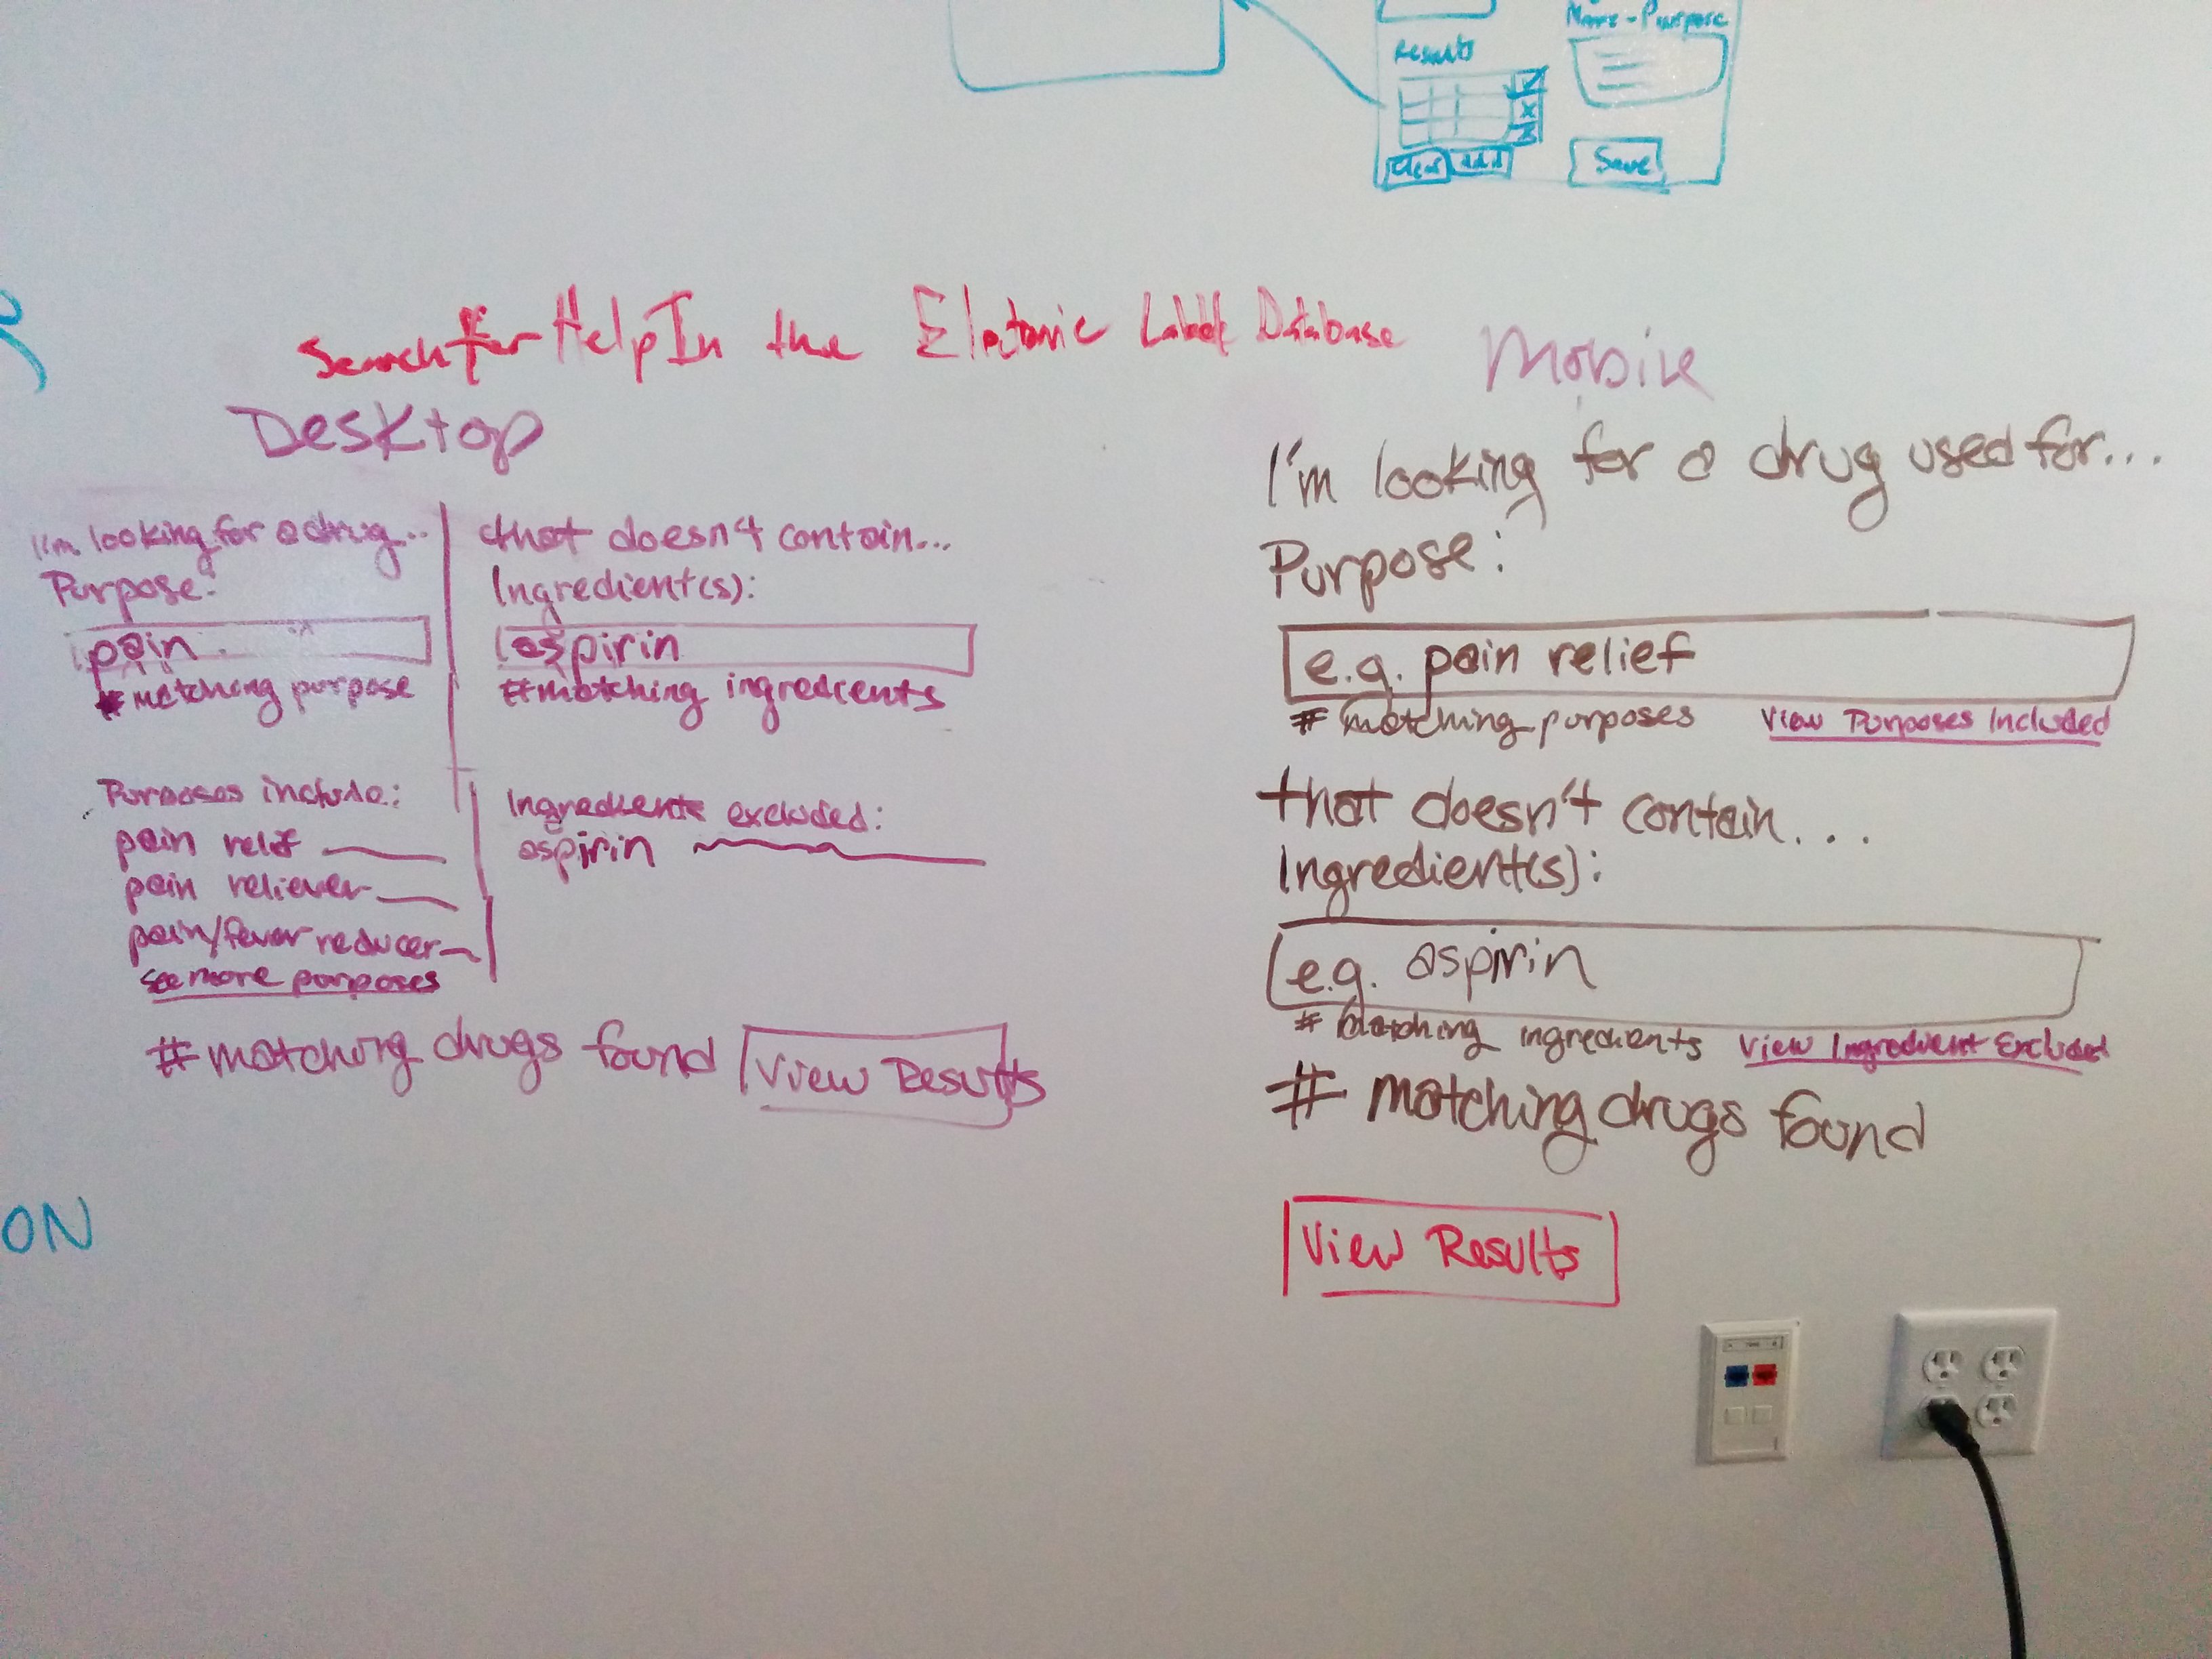 Name - Purpose
Results
Clear Add
Save
Search for Help In the Eletonic Label Database
Desktop
I'm looking for a drug...
Purpose:
pain
# matching purpose
that doesn't contain...
Ingredient(s):
aspirin
# matching ingredients
Purposes include:
pain relief
pain reliever
pain/fever reducer
see more purposes
Ingredients excluded:
aspirin
# matching drugs found
View Results
Mobile
I'm looking for a drug used for...
Purpose:
e.g. pain relief
# matching purposes View Purposes Included
that doesn't contain...
Ingredient(s):
e.g. aspirin
# matching ingredients View Ingredient Excluded
# matching drugs found
View Results
ON